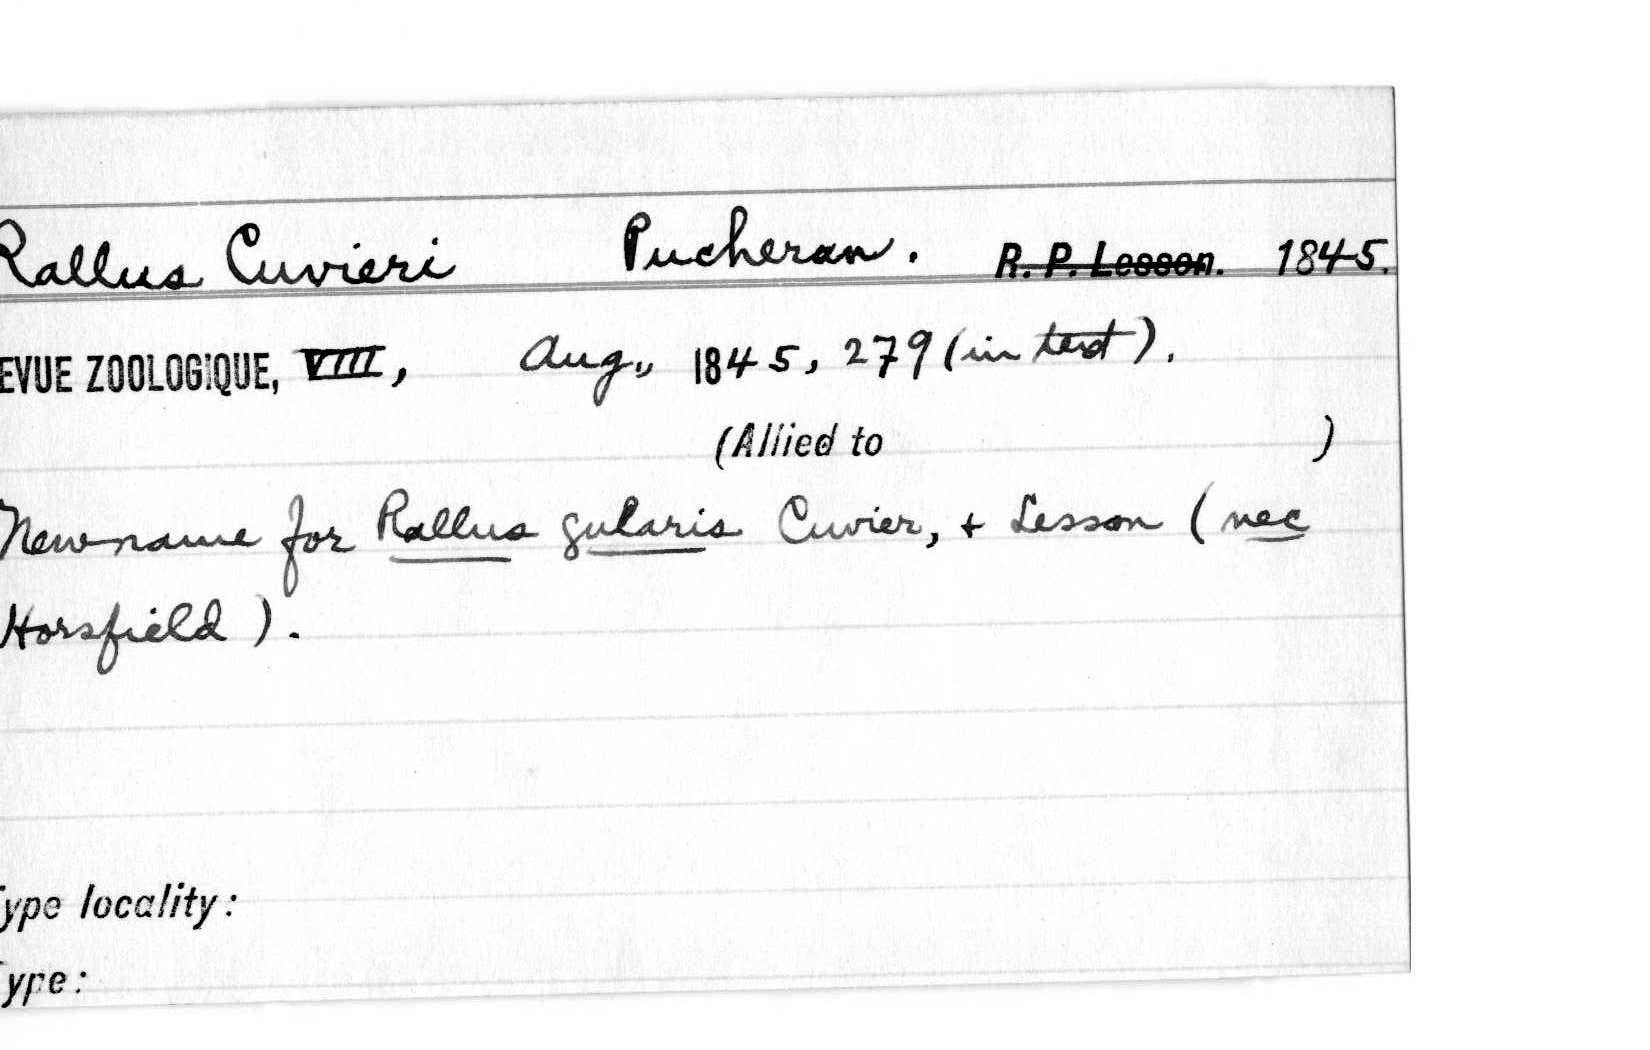 Rallus Cuvieri Pucheran. R. P. Lesson. 1845.
EVUE ZOOLOGIQUE, VIII, Aug., 1845, 279 (in text).
(Allied to )
New name for Rallus gularis Cuvier, + Lesson (nec
Horsfield).
Type locality:
Type: